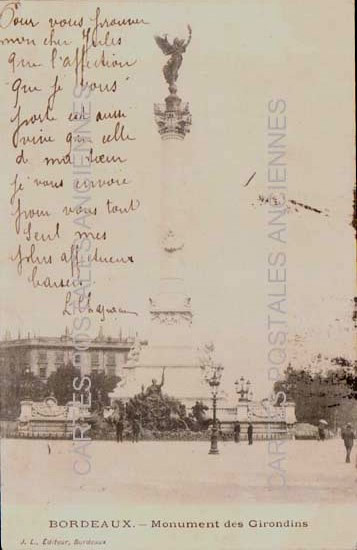 Pour vous prouver
mon cher Jules
que l'affection
que je vous
porte est aussi
vive que celle
de ma sœur
je vous envoie
pour vous tout
seul mes
plus affectueux
baisers
CARTES POSTALES ANCIENNES
CARTES POSTALES ANCIENNES
BORDEAUX. – Monument des Girondins
J. L., Éditeur, Bordeaux